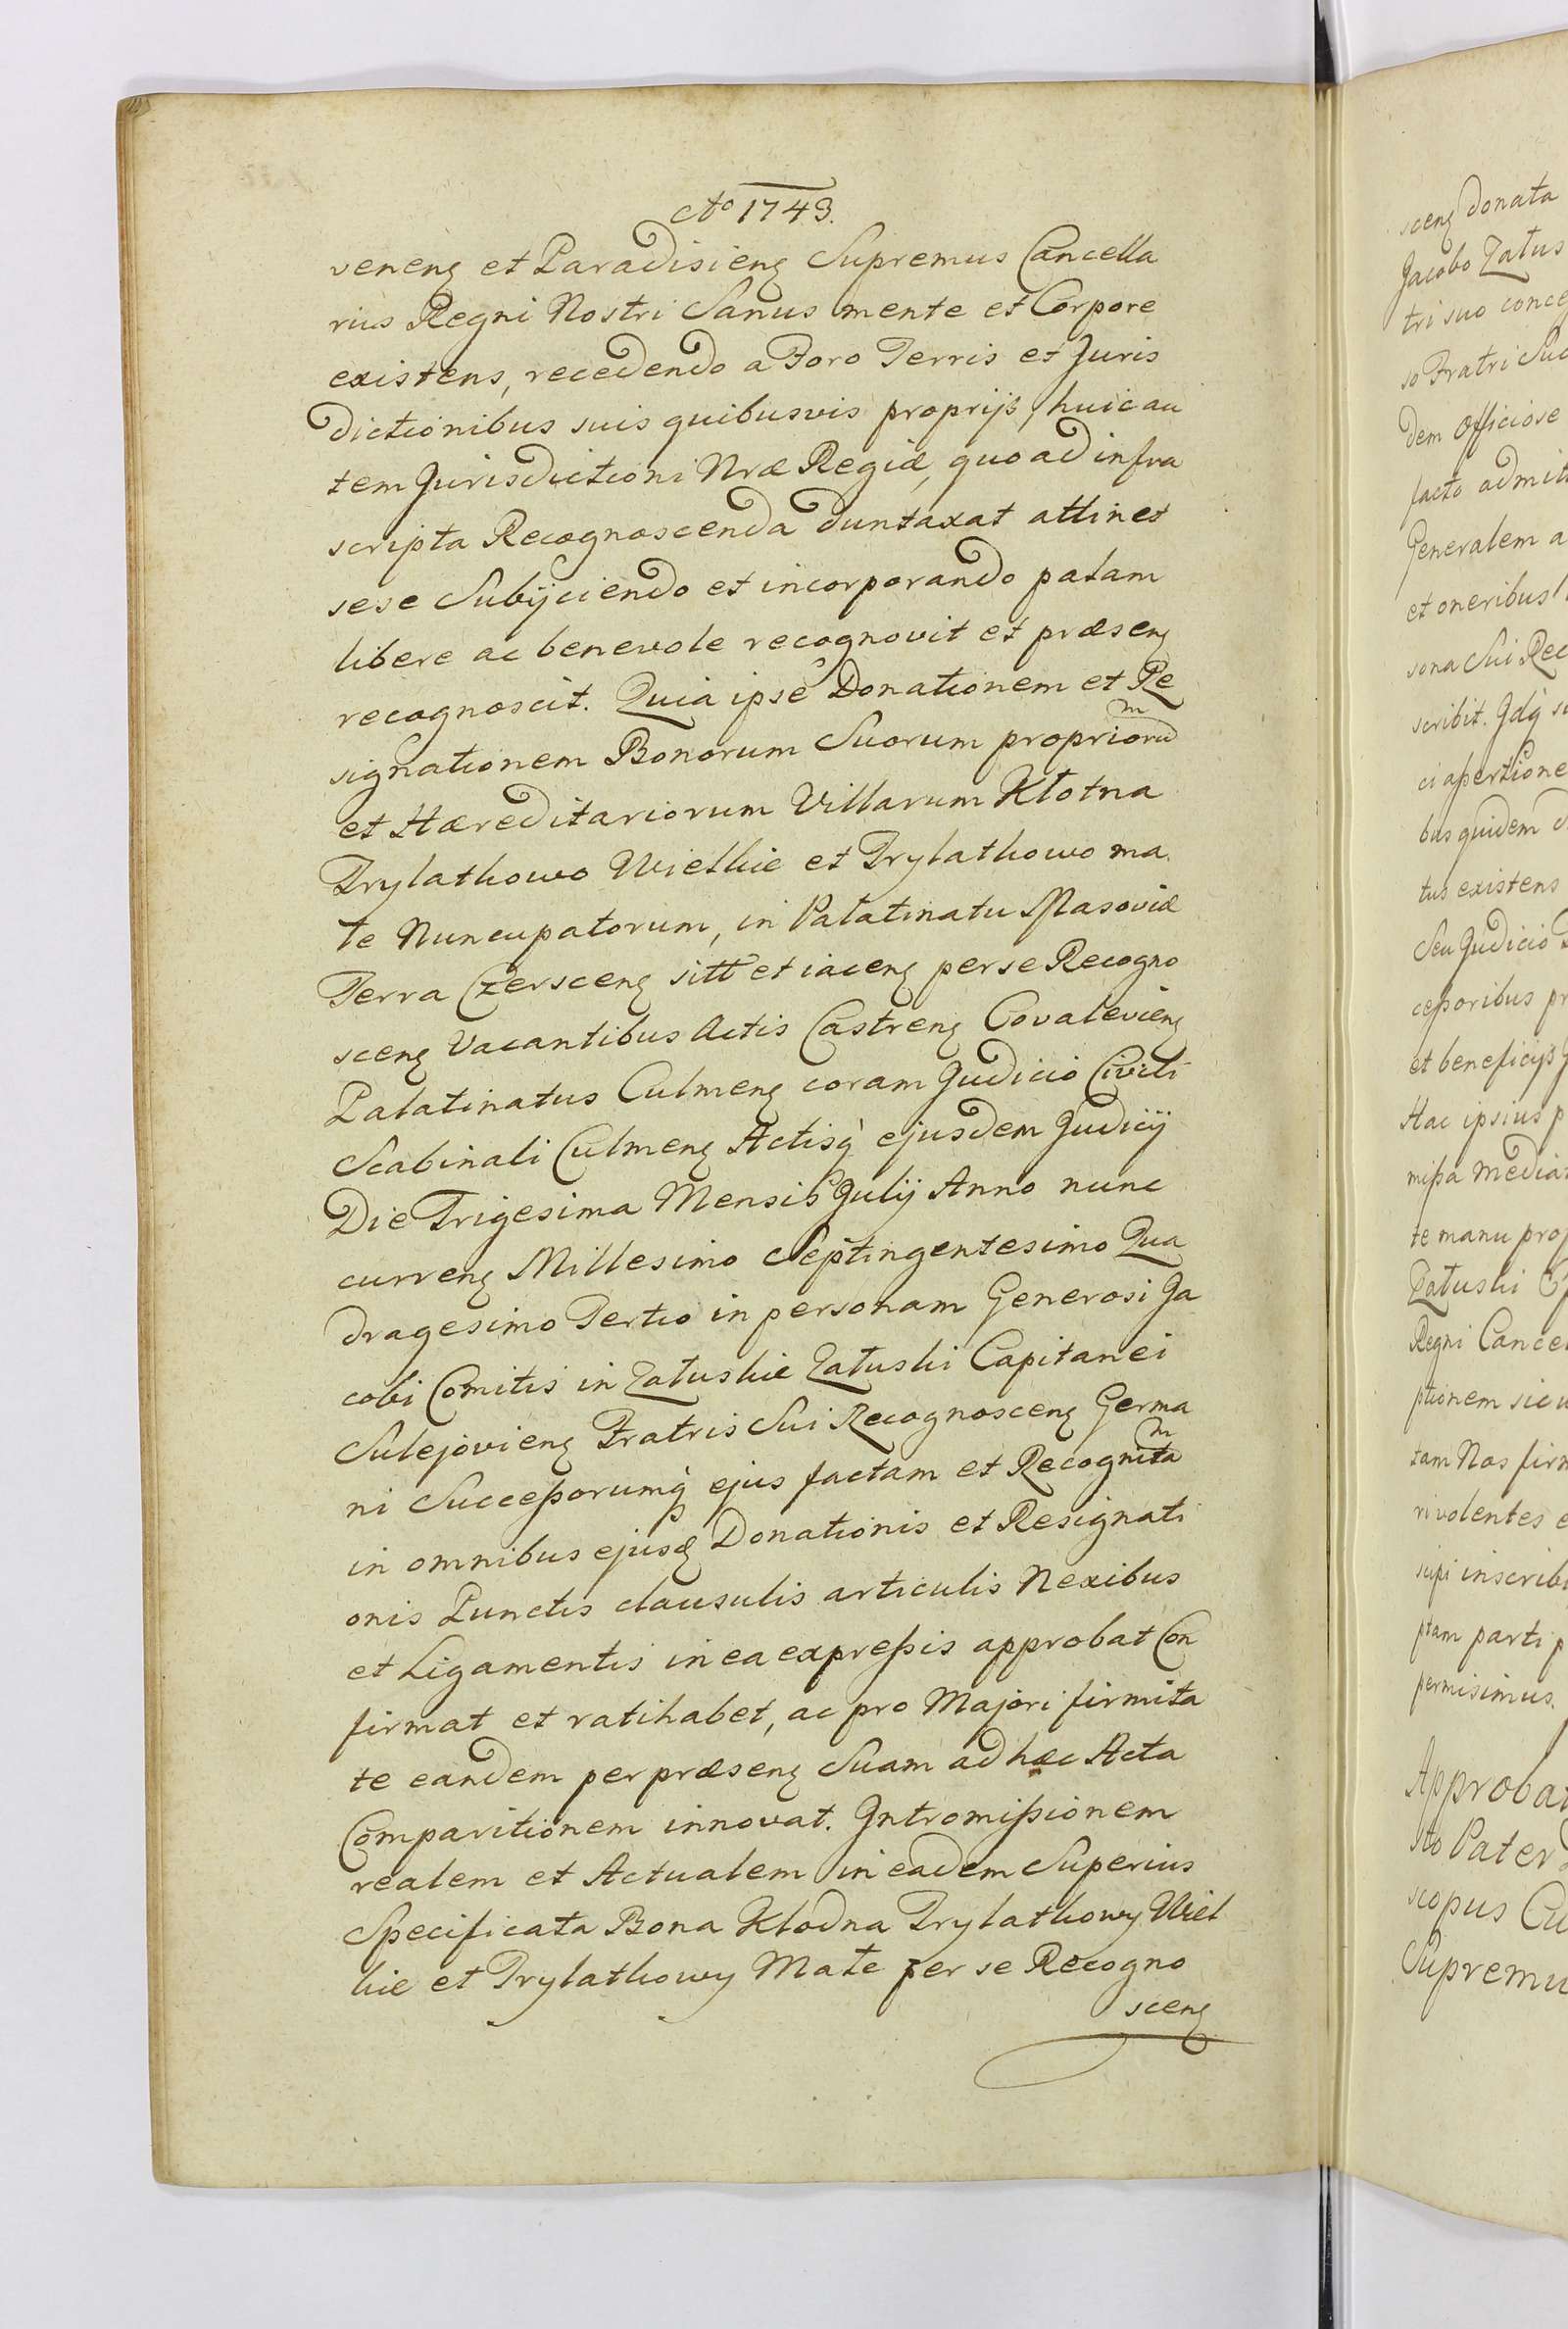 Ao 1743.
veneng et Paradisieng Supremus Cancella
rius Regni Nostri Sanus mente et Corpore
existens, recedendo a Foro Terris et Juris
dictionibus suis quibusvis proprijs, huic au
tem Jurisdictioni Nræ Regiæ, quo ad infra
scripta Recognoscenda duntaxat attinet
sese Subijciendo et incorporando palam
libere ac benevole recognovit et præseng
recognoscit. Quia ipse Donationem et Re
signationem Bonorum Suorum propriorum
et Hæreditariorum Villarum Kłotna
Prylatkowo Wielkie et Prylatkowo ma
łe Nuncupatorum, in Palatinatu Masoviæ
Terra Czersceng sitt et iaceng per se Recogno
sceng Vacantibus Actis Castreng Covalevieng
Palatinatus Culmeng coram Judicio Civili
Scabinali Culmeng Actisq ejusdem Judicij
Die Trigesima Mensis Julij Anno nunc
curreng Millesimo Septingentesimo Qua
dragesimo Tertio in personam Generosi Ja
cobi Comitis in Załuskie Załuski Capitanei
Sulejovieng Fratris Sui Recognosceng Germa
ni Successorumq ejus factam et Recognitam
in omnibus ejusd Donationis et Resignati
onis Punctis clausulis articulis Nexibus
et Ligamentis in ea expressis approbat Con
firmat et ratihabet, ac pro Majori firmita
te eandem per præseng Suam ad hæc Acta
Comparitionem innovat. Intromissionem
realem et Actualem in eadem Superius
Specificata Bona Kłodna Prylatkowy Wiel
kie et Prylatkowy Małe per se Recogno
sceng
sceng donata
Jacobo Załus
tri suo conce
so Fratri Suo
dem Officiose
facto admit
Generalem a
et oneribus
sona Sui Rec
scribit. Idq su
ci apertione
bus quidem
tus existens
Seu Judicio
cessoribus pr
et beneficijs
Hac ipsius p
missa mediat
te manu prop
Załuski
Regni Cancel
ptionem sicu
tam Nos firm
ri volentes e
scipi inscrib
ptam parti p
permisimus.
Approbat
sto Pater
scopus Cu
Supremu